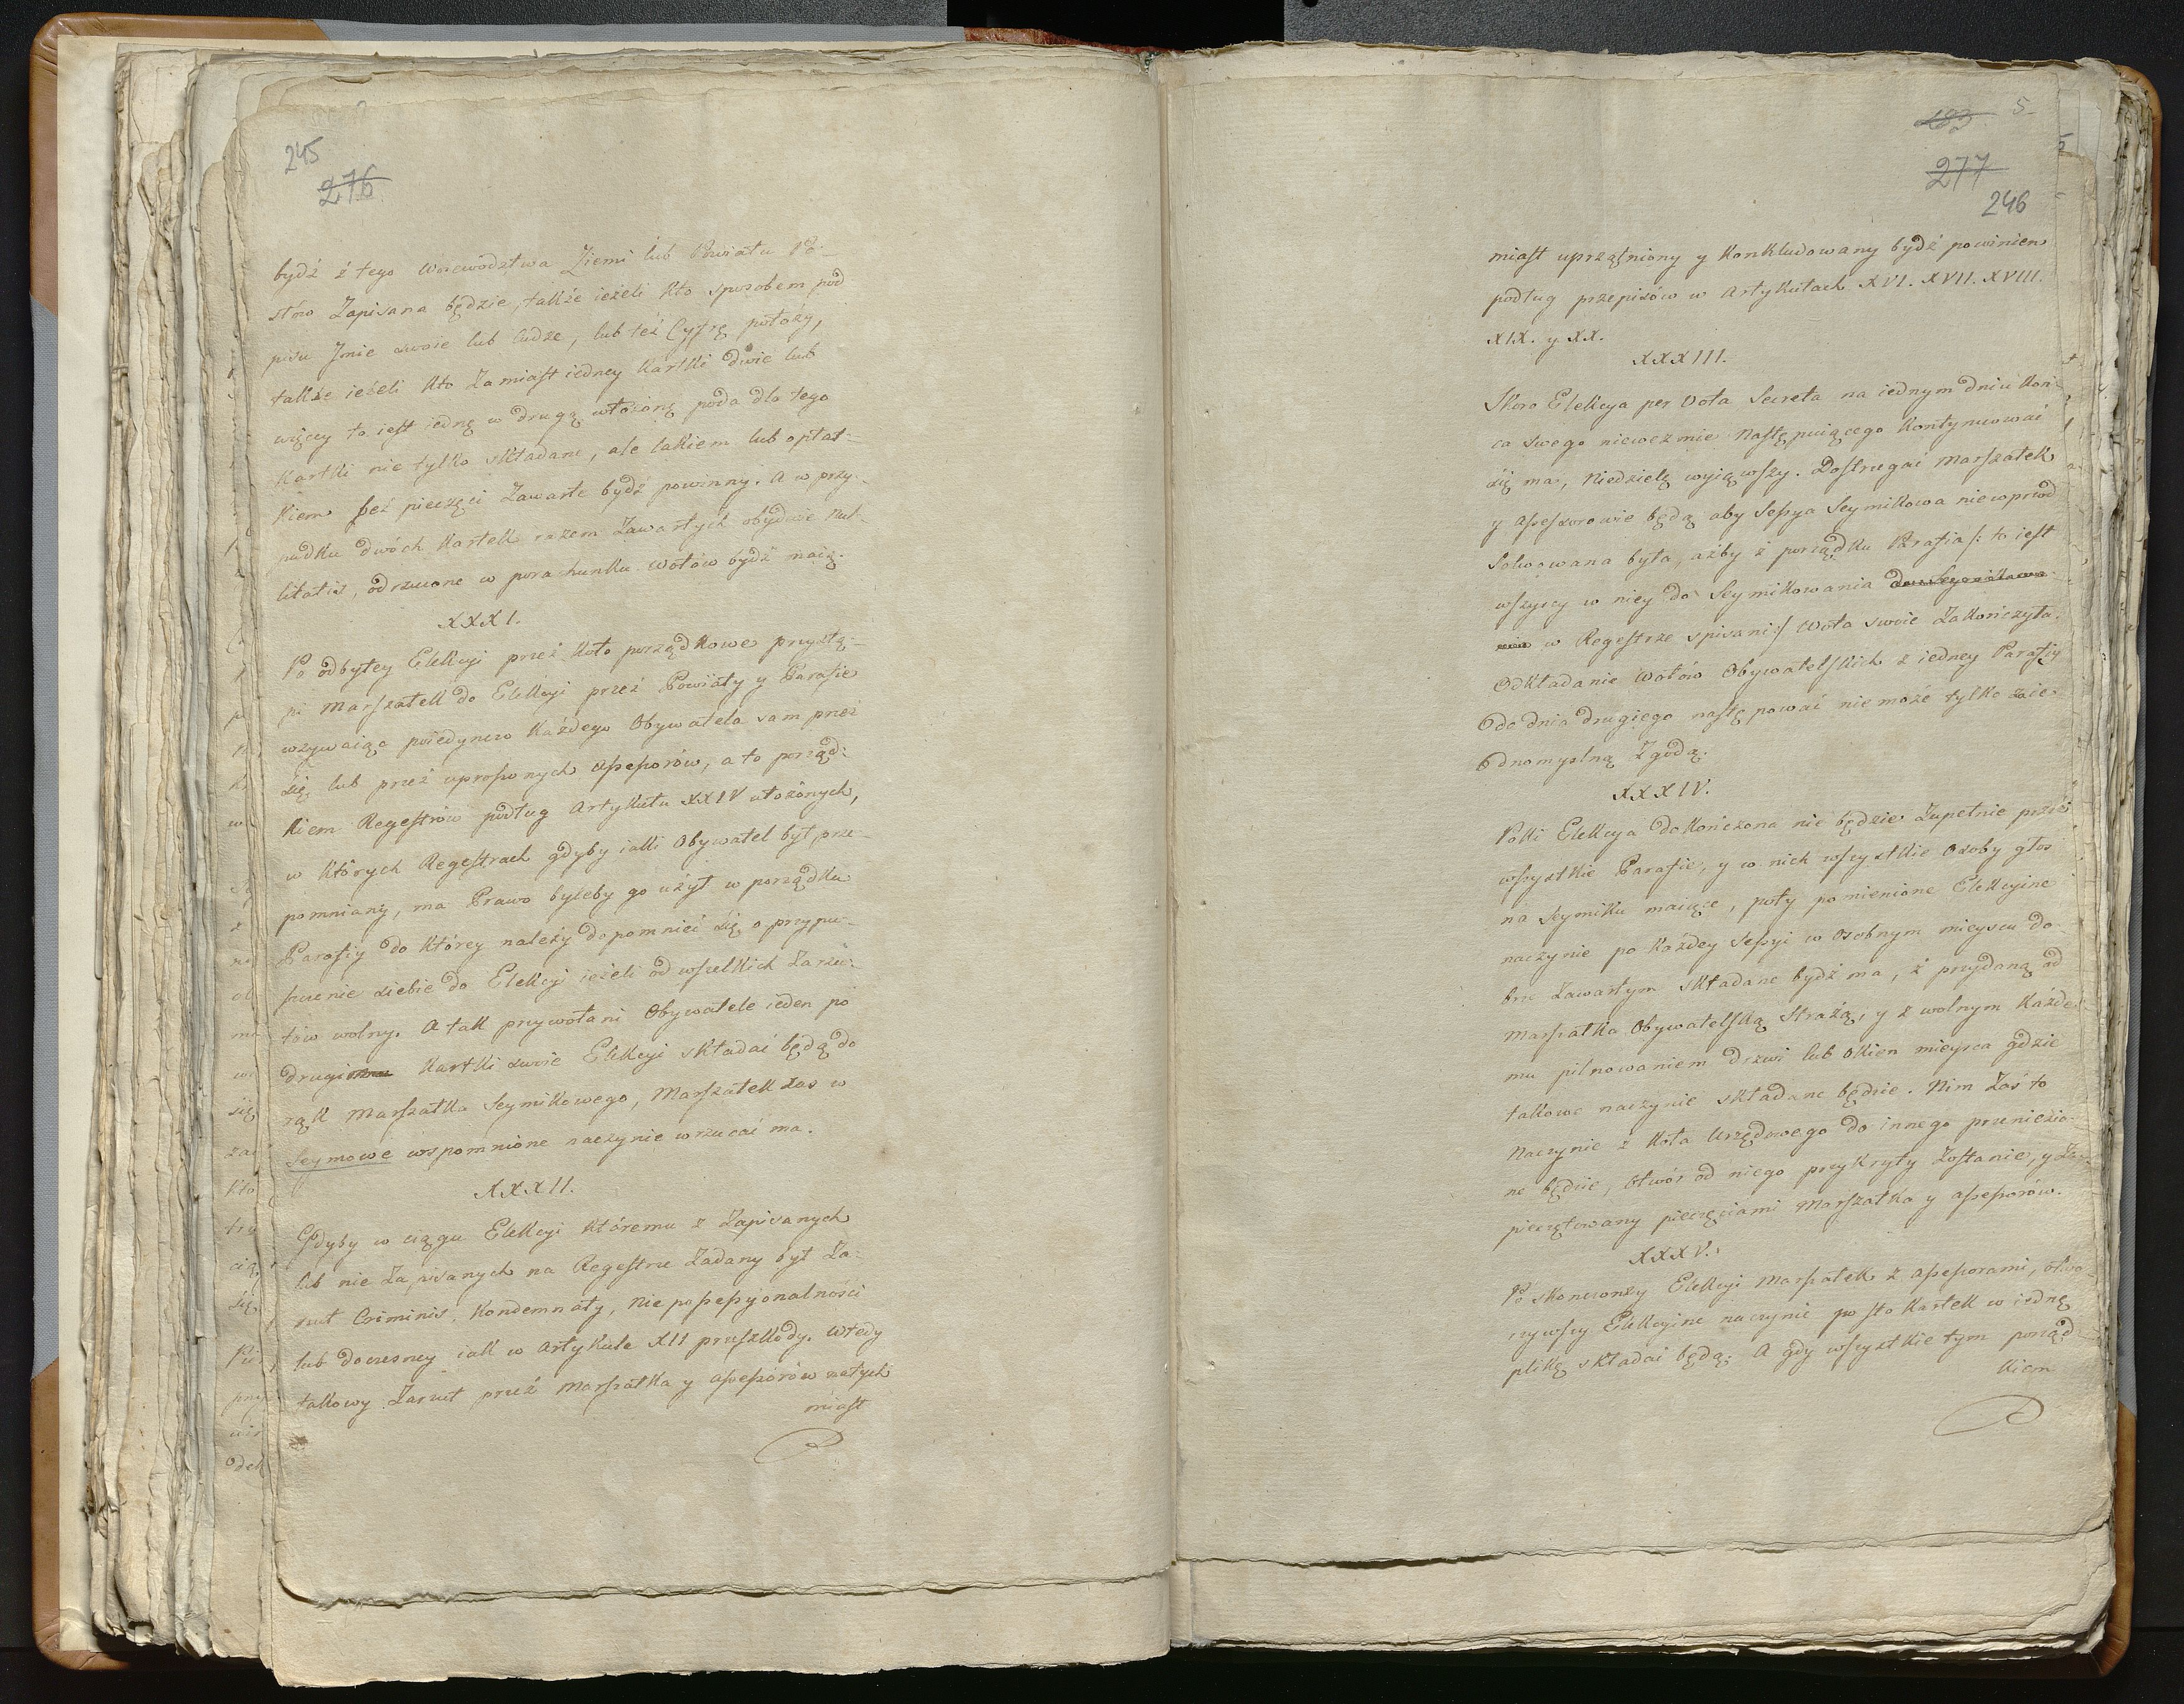 245
276
bydź z tego Woiewództwa Ziemi lub Powiatu Po-
słów Zapisana będzie, także ieżeli kto sposobem pod
pisu Jmie swoie lub ludze, lub też Cyfrę położy,
także ieżeli kto Zamiast iedney Kartki dwie lub
więcy to iest iednę w drugą włożonę poda dla tego
Kartki nie tylko składane, ale lakiem lub opłat-
kiem beź pieczęci Zawarte bydź powinny. A w przy-
padku dwóch Kartek razem Zawartych obydwie nul-
litatis, odrzucone w porachunku Wotów bydź maią.
XXXI.
Po odbytey Elekcyi przeź koło porządkowe przystą-
pi Marszałek do Elekcyi przeź Powiaty y Parafie
wzywaiąc poiedynczo Każdego Obywatela sam przeź
się lub przeź uproszonych assessorów, a to porząd-
kiem Regestrów podług Artykułu XXIV ułożonych,
w których Regestrach gdyby iakki Obywatel był prze-
pomniany, ma Prawo byleby go użył w porządku
Parafiy do którey należy dopomnieć się o przypu-
szczenie siebie do Elekcyi ieżeli od wszelkich Zarzu-
tów wolny. A tak przywołani Obywatele ieden po
drugim Kartki swoie Elekcyi składać będą do
rąk Marszałka Seymikowego, Marszałek zas w
Seymowe wspomnione naczynie wrzucać ma.
XXXII.
Gdyby w ciągu Elekcyi któremu z Zapisanych
lub nie Zapisanych na Regestrze Zadany był Za-
rzut Criminis, Kondemnaty, nie possessyonalności
lub doczesney iak w Artykule XII przeszkody. Wtedy
takowy Zarzut przeź Marszałka y assessorów natych
miast
5
277
246
miast uprzątniony y Konkludowany bydź powinien
podług przepisów w Artykułach XVI. XVII. XVIII.
XIX. y XX.
XXXIII.
Skoro Elekcya per Vota Secreta na iednym dniu Koń-
ca swego nieweźmie Następuiącego Kontynuować
się ma, Niedzielę wyiąwszy. Dostrzegać Marszałek
y Assessorowie będą aby Sessya Seymikowa nie wprzód
Solwowana była, ażby z porządku Parafia /: to iest
wszyscy w niey do Seymikowania
w Regestrze spisani :/ Wota swoie Zakończyła.
Odkładanie Wotów Obywatelskich z iedney Parafiy
do dnia drugiego następować nie może tylko za ie-
dnomyslną Zgodą.
XXXIV.
Poki Elekcya dokończona nie będzie Zupełnie przeź
wszystkie Parafie, y w nich wszystkie Osoby głos
na Seymiku maiące, poty pomienione Elekcyine
naczynie po każdey Sessyi w osobnym mieyscu do-
brze Zawartym składane bydź ma, z przydaną od
Marszałka Obywatelską Strażą, y z wolnym każde-
mu pilnowaniem drzwi lub okien mieysca gdzie
takowe naczynie składane będzie. Nim Zaś to
Naczynie z Koła Urzędowego do innego przeniesio-
ne będzie, otwór od niego przykryty Zostanie, y Za-
pieczętowany pieczęciami Marszałka y assessorów.
XXXV.
Po skonczoney Elekcyi Marszałek z assessorami, otwo-
rzywszy Elekcyine naczynie po sto Kartek w iednę
plikę składać będą. A gdy wszystkie tym porząd
kiem